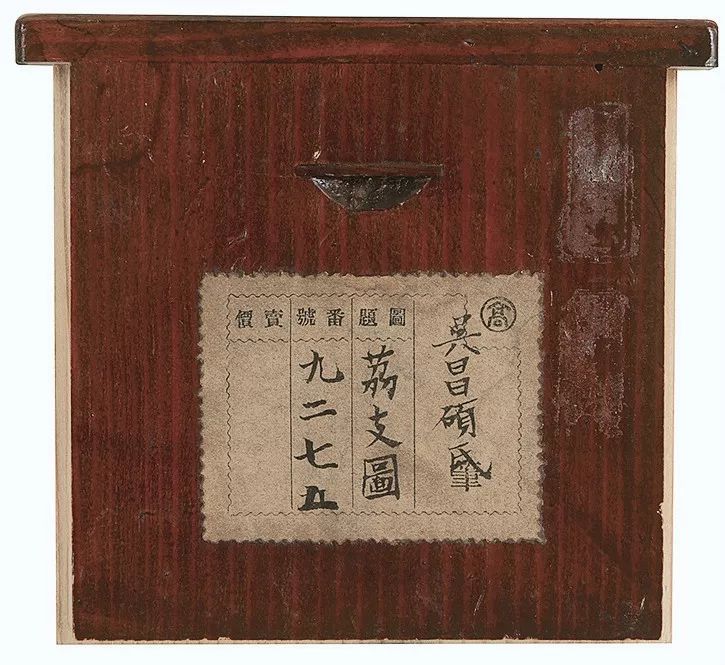 髙
吳昌碩氏筆
圖題
荔支圖
番號
九二七五
賣價